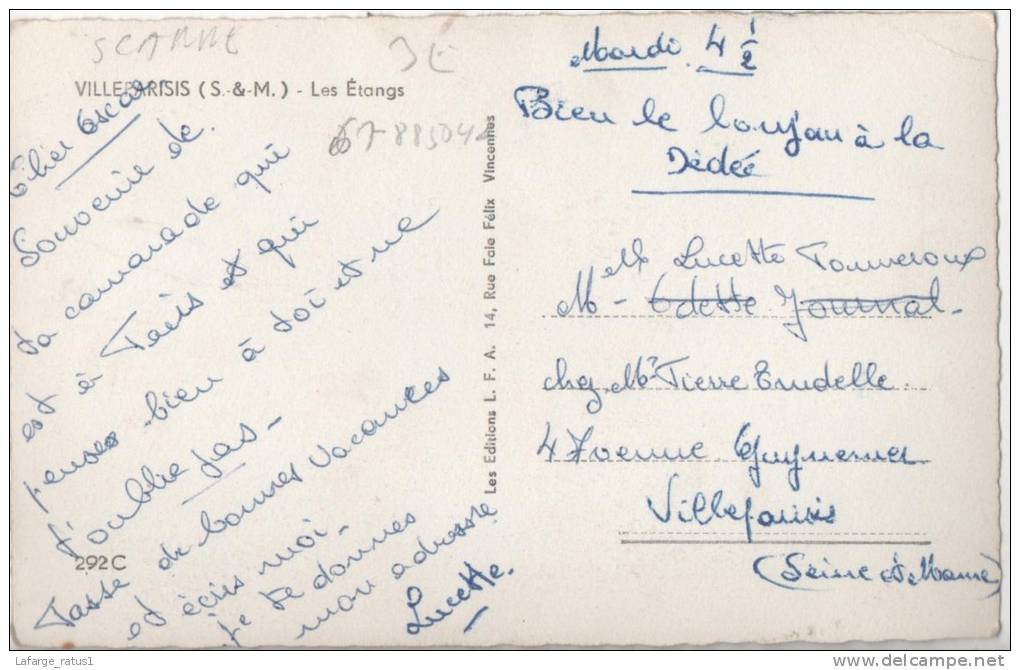 SCANNE
3E
VILLEPARISIS (S.-&-M.) - Les Étangs
67885042
Cher Oscar
Souvenir de
ta camarade qui
est à Paris et qui
penses bien à toi et ne
t'oublie pas -
Passe de bonnes Vacances
et écris moi -
je te donnes
mon adresse
Lucette.
292C
Les Editions L. F. A. 14, Rue Faie Félix Vincennes
Mardi 4 1/2
Bien le bonjour à la
Dédée
Melle Lucette Tonneroux
M - Odette Journal -
chez Mr Pierre Trudelle
4 Avenue Guynemer
Villeparisis
(Seine et Marne)
Lafarge_ratus1
delcampe.net